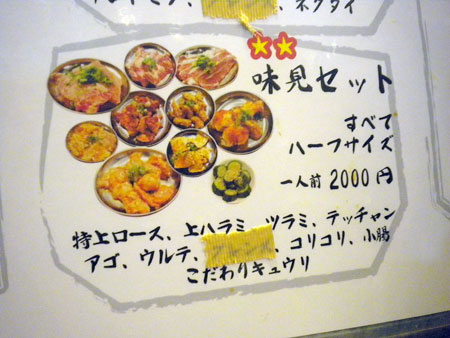 ネクタイ
味見セット
すべて
ハーフサイズ
一人前 2000円
特上ロース、上ハラミ、ツラミ、テッチャン
アゴ、ウルテ、、コリコリ、小腸
こだわりキュウリ